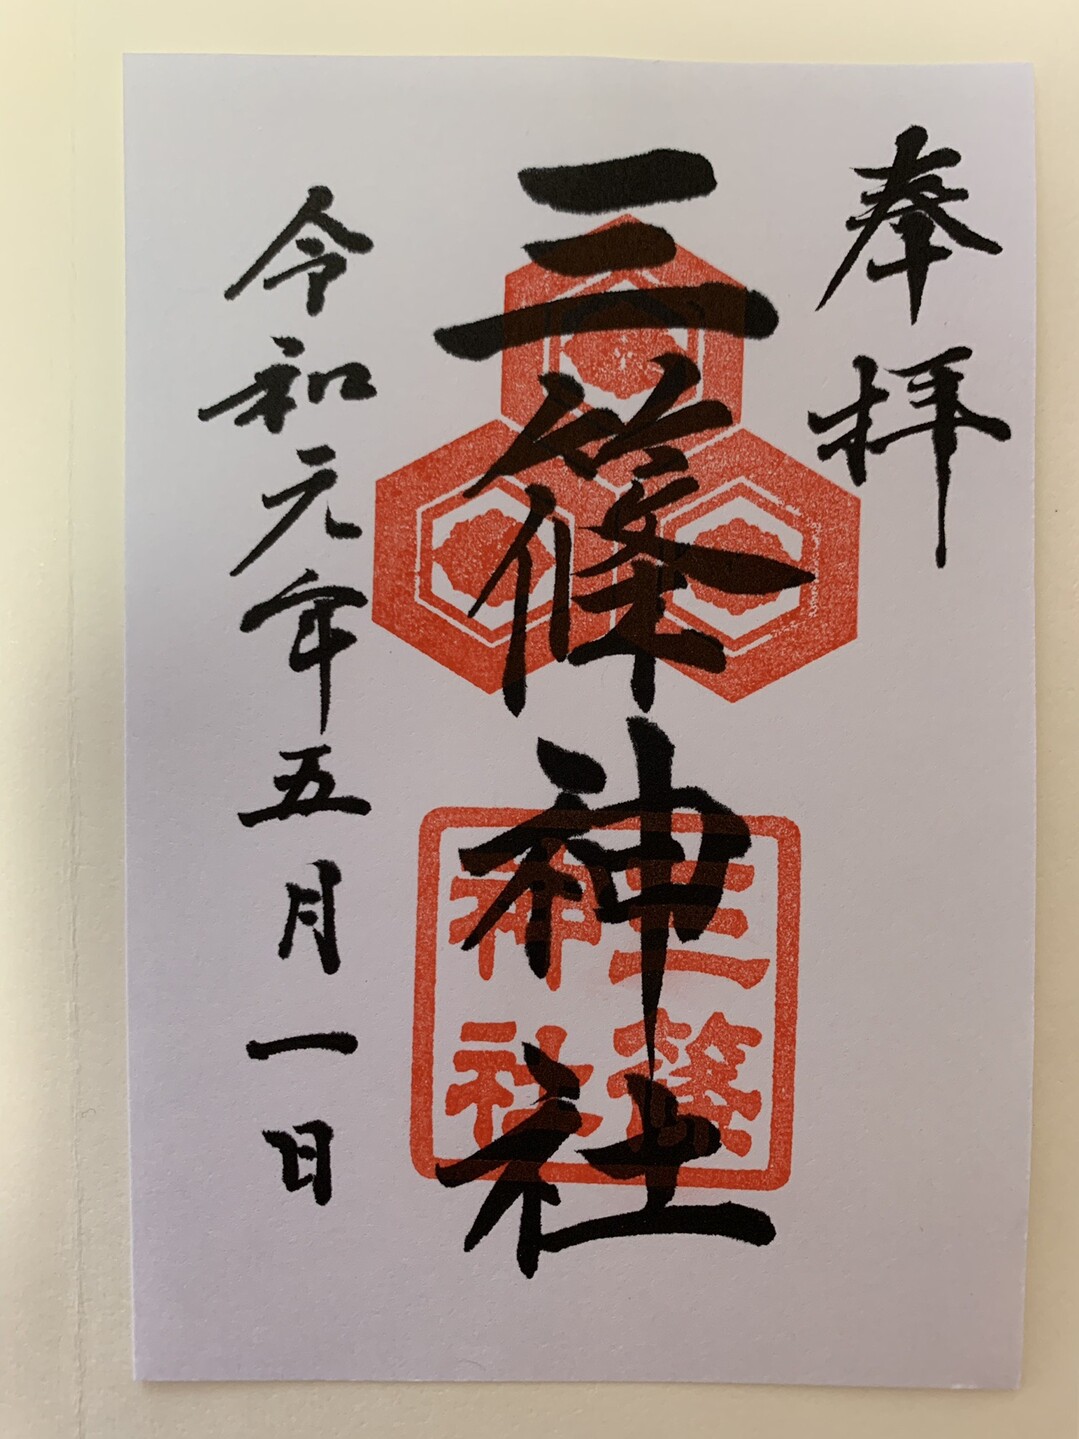 奉拝
三篠神社
令和元年五月一日
三篠
神社